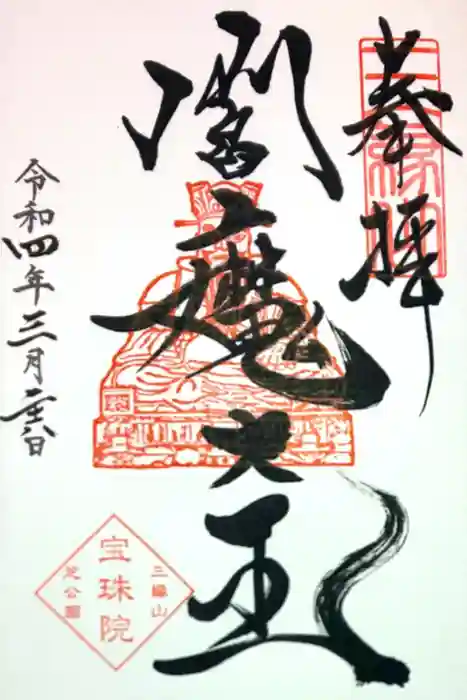 奉拝
閻魔大王
令和四年三月二十六日
三縁山
宝珠院
芝公園